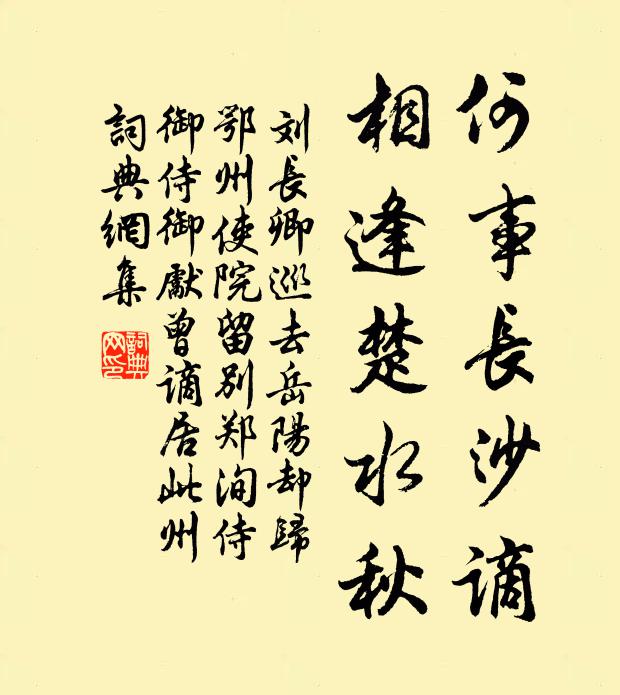 何事長沙謫
相逢楚水秋
刘長卿巡去岳陽却歸
鄂州使院留别郑洵侍
御侍御獻曾謫居此州
詞典網集
詞典网印